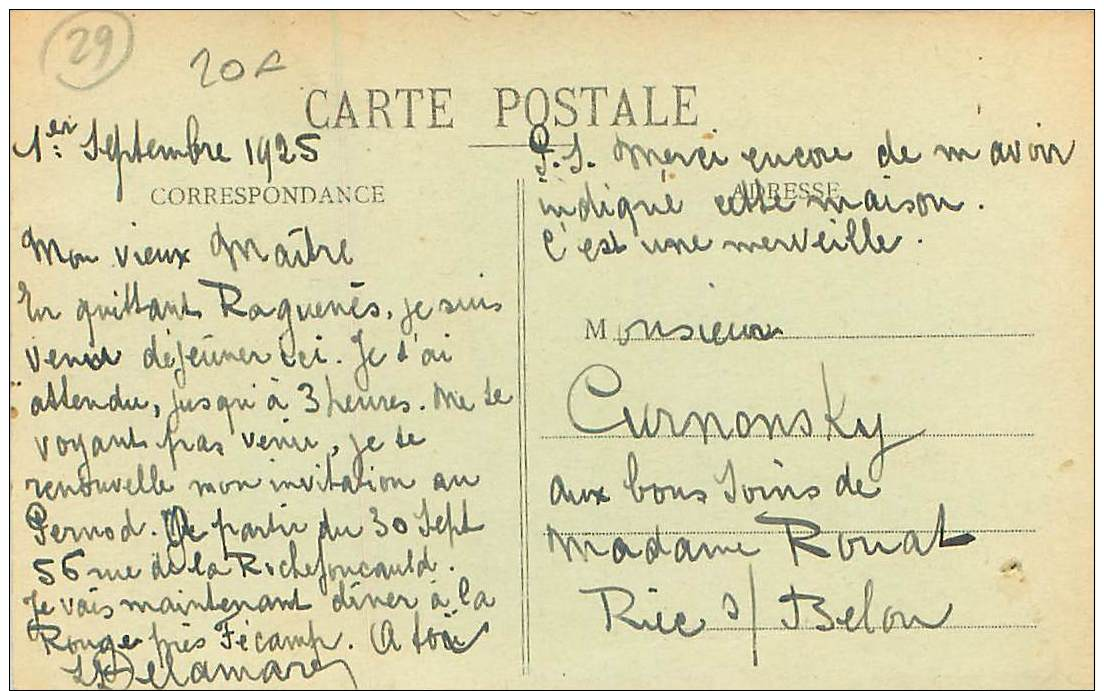 29
20F
CARTE POSTALE
1er Septembre 1925
CORRESPONDANCE
Mon vieux Maître
En quittant Raguenès, je suis
venu déjeûner ici. Je t'ai
attendu, jusqu'à 3 heures. Ne te
voyant pas venir, je te
renouvelle mon invitation au
Pernod. A partir du 30 Sept
56 rue de la Rochefoucauld.
Je vais maintenant dîner à la
Rouge près Fécamp. A toi
Delamare
P.S. Merci encore de m'avoir
ADRESSE
indiqué cette maison.
C'est une merveille.
Monsieur
Curnonsky
aux bons soins de
Madame Rouat
Riec s/ Belon